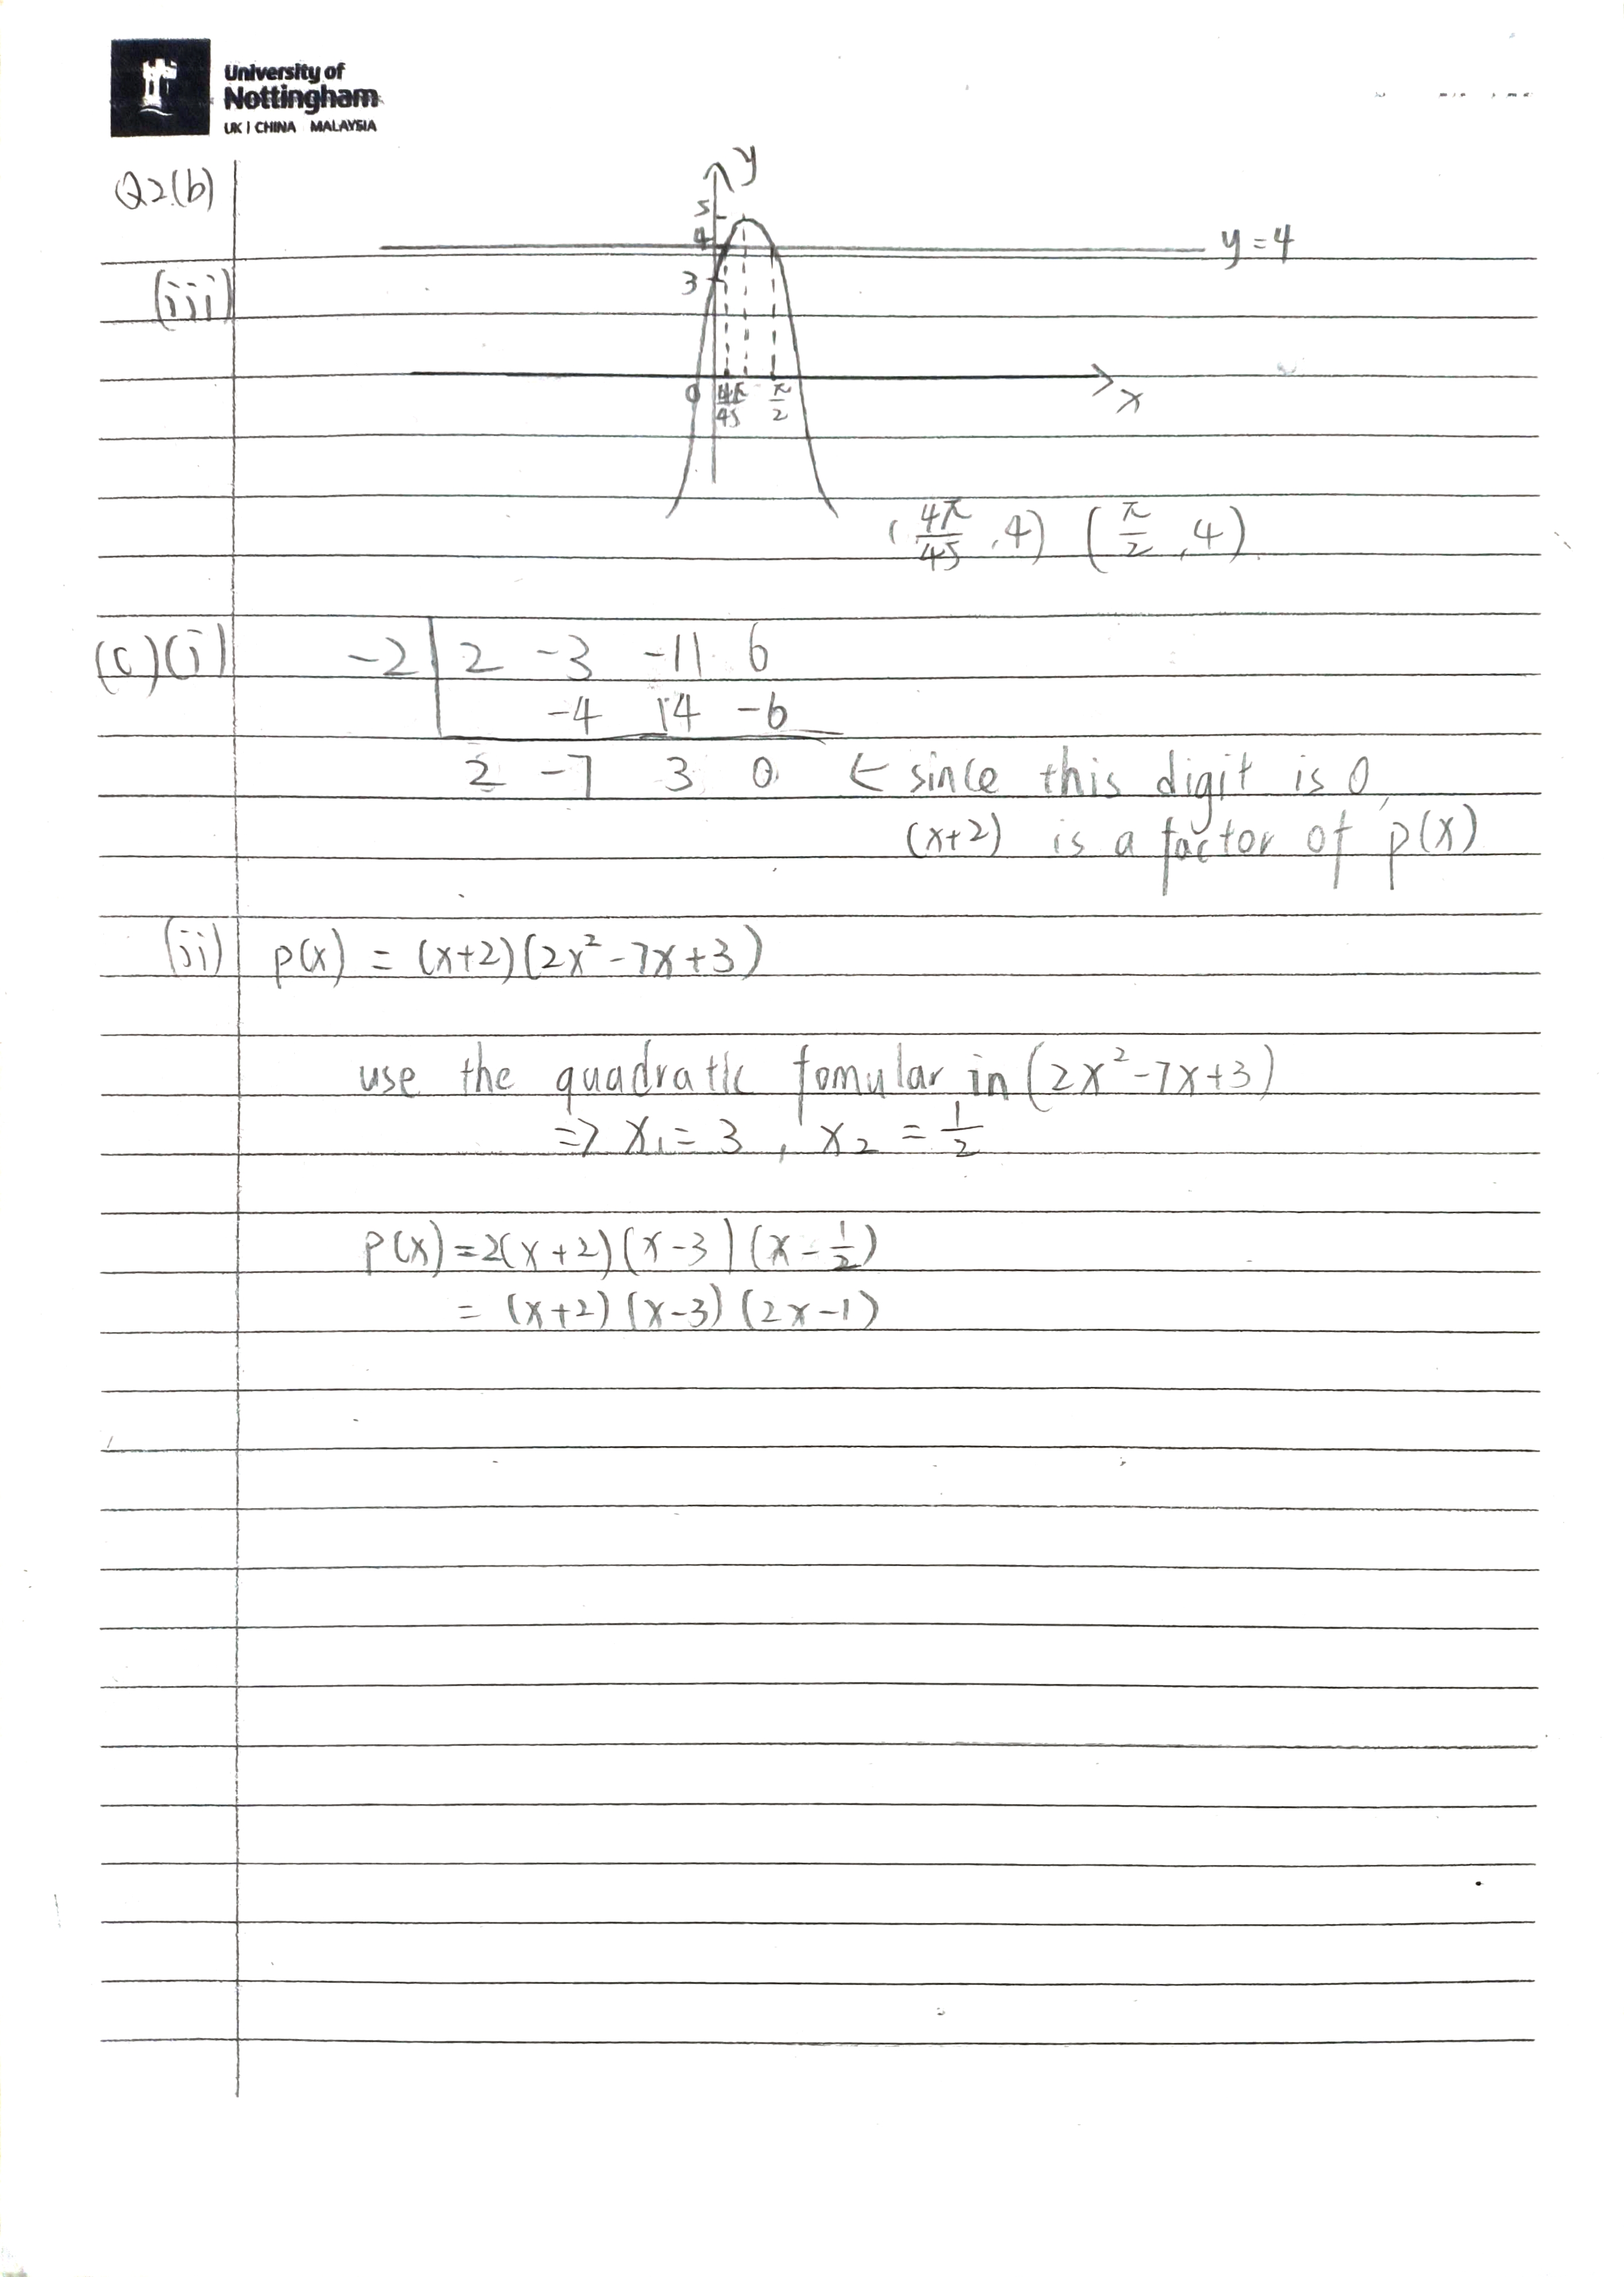 University of
Nottingham
UK | CHINA MALAYSIA
Q2(b)
y
5
4
y = 4
3
(iii)
0 4π/45 π/2
x
(4π/45, 4) (π/2, 4)
(c)(i) -2 | 2 -3 -11 6
-4 14 -6
2 -7 3 0 ← since this digit is 0,
(x+2) is a factor of p(x)
(ii) p(x) = (x+2)(2x²-7x+3)
use the quadratic fomular in (2x²-7x+3)
=> x₁ = 3, x₂ = 1/2
p(x) = 2(x+2)(x-3)(x-1/2)
= (x+2)(x-3)(2x-1)